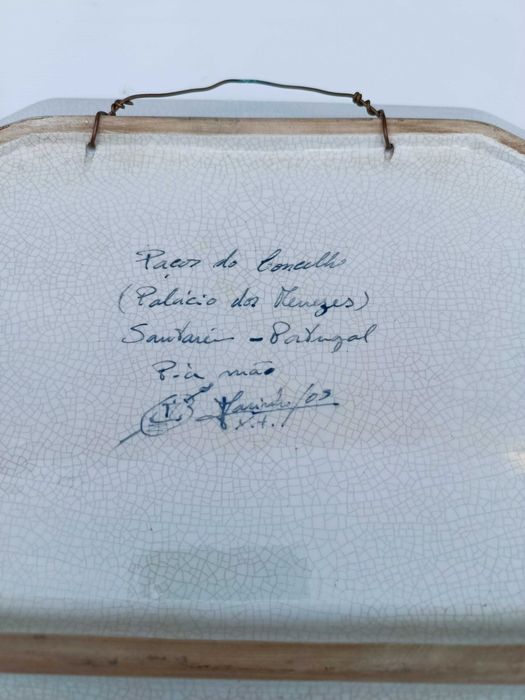 Paços do Concelho
(Palácio dos Menezes)
Santarém - Portugal
P. à mão
/03